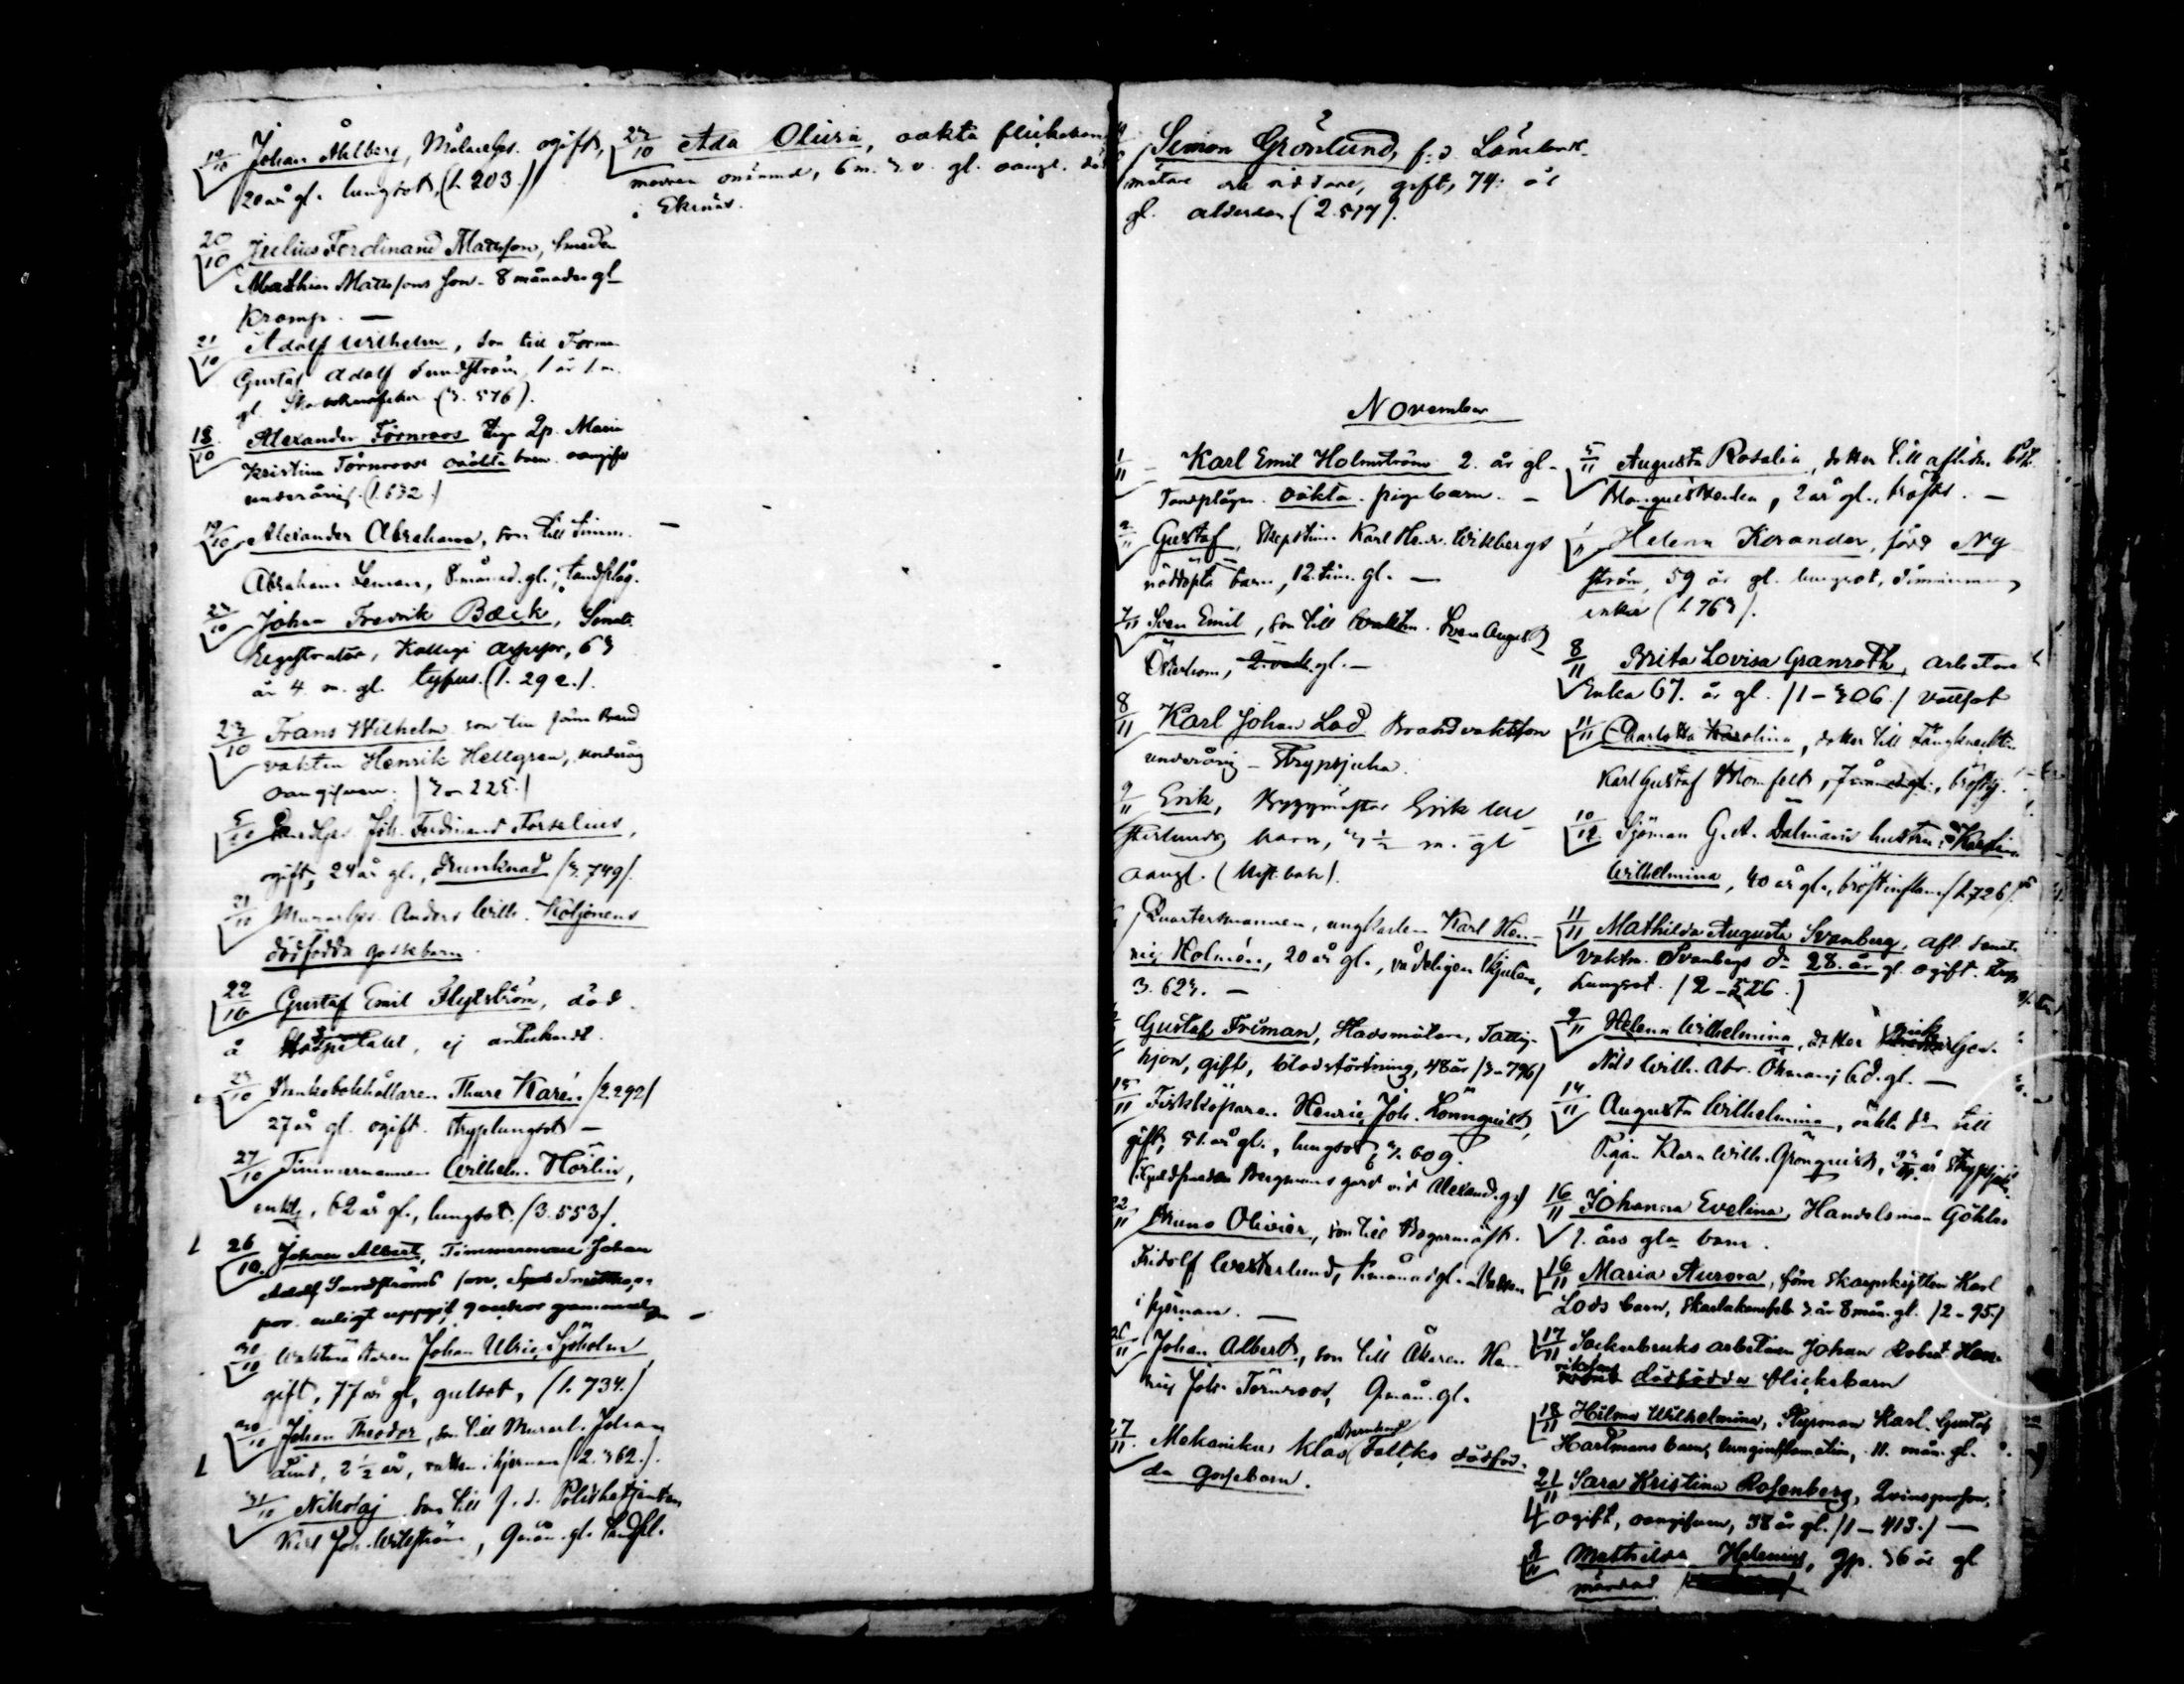 19/10 Johan Åhlberg, Målareges. ogift,
20 år gl. lungsot, (1. 203.)
20/10 Julius Ferdinand Mattsson, smeden
Mathias Mattssons son. 8 månader gl
kramp. —
21/10 Adolf Wilhelm, son till Forman
Gustaf Adolf Sundström, 1 år 1 m.
gl. (3. 576).
18/10 Alexander Törnroos Qp. Maria
Kristina Törnroos oäkta barn oangifv
underårig. (1. 632.)
19/10 Alexander Abraham, son till timm.
Abraham Leman, 8 månad. gl., tandplåg.
23/10 Johan Fredrik Bæck, Senats
Registrator, Kollegi Assessor, 63
år 4. m. gl. typus. (1. 292.).
23/10 Frans Wilhelm son till förre Brand
vakten Henrik Hellgren, underårig
oangifven. (3 - 225.)
5/10 Joh. Ferdinand Forselius,
ogift, 24 år gl., drunknad (3. 749).
21/10 Murareges. Anders Wilh. Koljonens
dödfödda gossebarn.
22/10 Gustaf Emil Flytström, död
å Hospitalet, ej antecknadt.
23/10 Bankobokhållaren Thure Karén (2. 292)
27 år gl. ogift. stryplungsot —
27/10 Timmermannen Wilhelm Hörlin,
enkl., 62 år gl., lungsot. (3. 553).
1 26/10 Johan Albert, Timmerman Johan
Adolf Sundströms son,
enligt uppgift 9 veckor gammal
30/10 Waktmästaren Johan Ulric Sjöholm
gift, 77 år gl, gulsot, (1. 734.)
30/10 Johan Theodor, son till Murarl. Johan
1 Lind, 2 1/2 år, vatten i hjernan (2. 362.).
31/10 Nikolaj son till f. d. Polisbetjenten
Karl Joh. Willström, 9 mån. gl. tandpl.
23/10 Ada Olivia, oäkta flickebarn
modren onämnd, 6 m. 3 v. gl. oangl. död
i Ekenäs.
Simon Grönlund, f. d. Landt
mätare och riddare, gift, 74 år
gl. ålderdom (2. 577).
November
1/11 Karl Emil Holmström 2. år gl.
Tandplågor. oäkta. pigebarn. —
2/11 Gustaf, Skepstimm. Karl Henr. Wikbergs
nöddöpta barn, 12. tim. gl. —
7/11 Sven Emil, son till Waktm. Sven August
Österblom, gl. —
8/11 Karl Johan Lod Brandvaktsson
underårig - Strypsjuka.
9/11 Erik, Byggmästar Erik We
sterlunds barn, 3 1/2 m. gl
oangl.
Quartersmannen, ungkarlen Karl Hen-
ric Holmén, 20 år gl., vådeligen skjuten,
3. 623. —
Gustaf Friman, Stadsmätare, Fattig-
hjon, gift, blodstörtning, 48 år (3 - 796)
15/11 Fiskköparen Henric Joh. Lönnquist,
gift, 51. år gl., lungsot, 3. 609.
(i Guldsmeden Bergmans gård vid Alexand. g.)
22/11 Bruno Olivier, son till Bagaremäst.
Fridolf Westerlund, månad gl. Vatten
i hjernan. —
26/11 Johan Albert, son till Åkaren Hen-
ric Joh. Törnroos, 9 mån. gl.
27/11 Mekanikus Klas Bernhard Faltks dödföd-
da gossebarn.
5/11 Augusta Rosalia, dotter till aflidn.
2 år gl., bröst. —
1/11 Helena Korander, född Ny
ström, 59 år gl. lungsot, timmermans
enka (1. 763).
8/11 Brita Lovisa Granroth, arbetare
Enka 67. år gl. (1 - 306.) vattsot
11/11 Charlotta Karolina, dotter till Fångknekten
Karl Gustaf Blomfelt, 7 månad gl., bröstsj.
10/12 Sjöman G. A. Dalman hustru Karolina
Wilhelmina, 40 år gl., bröstinflam. (1. 726).
11/11 Mathilda Augusta Svanberg, afl. Senats
vaktm. Svanbergs dr 28. år gl. ogift. Stryp
Lungsot. (2 - 526.)
9/11 Helena Wilhelmina, dotter
Nils Wilh. Abr. Öhman, 6 d. gl. —
14/11 Augusta Wilhelmina, oäkta dr till
Pigan Klara Wilh. Grönquist, år Strypsjuk.
16/11 Johanna Evelina, Handelsman Göhles
1. års gla barn.
16/11 Maria Aurora, förre Skarpskytten Karl
Lods barn, skarlakansfeb. 3 år 8 mån. gl. (2 - 95)
17/11 Sockerbruks arbetaren Johan Robert Hen-
rikssons dödfödda flickebarn
18/11 Hilma Wilhelmina, Styrman Karl Gustaf
Hartmans barn, lunginflamation, 11. mån. gl.
21/11 Sara Kristina Rosenberg, Qvinsperson,
4 ogift, oangifven, 38 år gl. (1 - 413.) —
9/11 Mathilda Helenius, Qp. 36 år gl
mördad